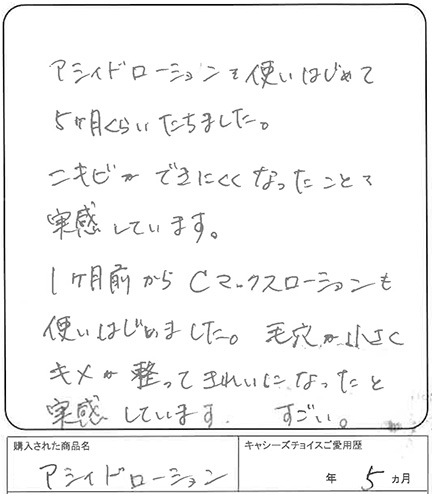 アシィドローションを使いはじめて
5ヶ月くらいたちました。
ニキビが できにくくなったことを
実感しています。
1ヶ月前からCマックスローションも
使いはじめました。毛穴が小さく
キメが整ってきれいになったと
実感しています. すごい。
購入された商品名
キャシーズチョイスご愛用歴
アシィドローション
年 5 ヵ月